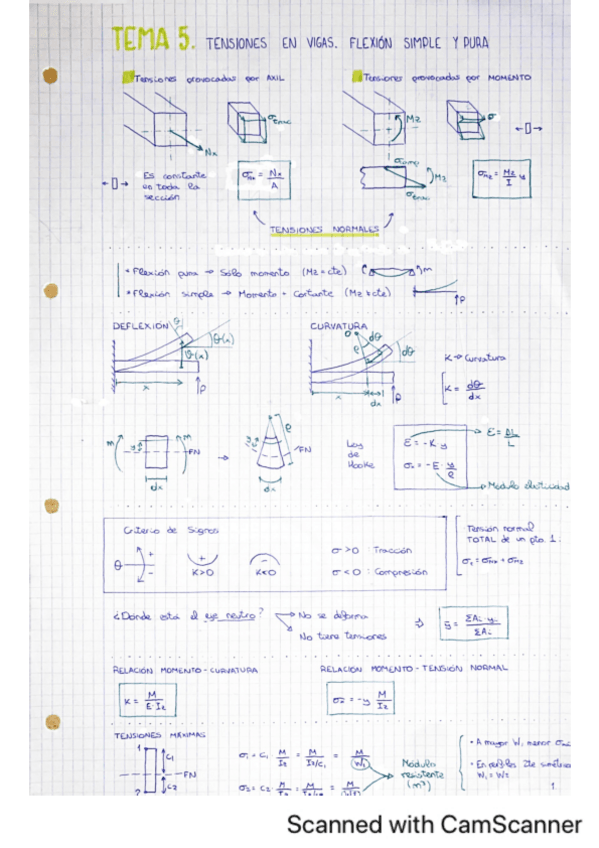 TEMA 5. TENSIONES EN VIGAS. FLEXIÓN SIMPLE Y PURA
Tensiones provocadas por AXIL
Tensiones provocadas por MOMENTO
Nx
Mz
σ
Es constante
en toda la
sección
σnx = Nx / A
Mz
σmz = Mz / I y
TENSIONES NORMALES
• Flexión pura → Solo momento (Mz = cte) m
• Flexión simple → Momento + Cortante (Mz ≠ cte) P
DEFLEXIÓN
θ
θ(x)
x
P
CURVATURA
O
dθ
ρ
dθ
x
dx
P
K → Curvatura
K = dθ / dx
m
m
FN
dx
→
ρ
FN
dx
Ley
de
Hooke
ε = -K·y
σx = -E · y / ρ
ε = ΔL / L
Módulo elasticidad
Criterio de Signos
θ
+
-
K>0
K<0
σ >0 : Tracción
σ <0 : Compresión
Tensión normal
TOTAL de un pto 1:
¿Dónde está el eje neutro?
No se deforma
No tiene tensiones
⇒
ΣAi
RELACIÓN MOMENTO - CURVATURA
RELACIÓN MOMENTO - TENSIÓN NORMAL
K = M / E·Iz
= -y M / Iz
TENSIONES MÁXIMAS
1
C1
FN
C2
2
σ1 = C1 M / Iz = M / Iz/C1 = M / W1
σ2 = C2
Módulo
resistente
(m³)
• A mayor W, menor
• En perfiles
W1 = W2
1
Scanned with CamScanner